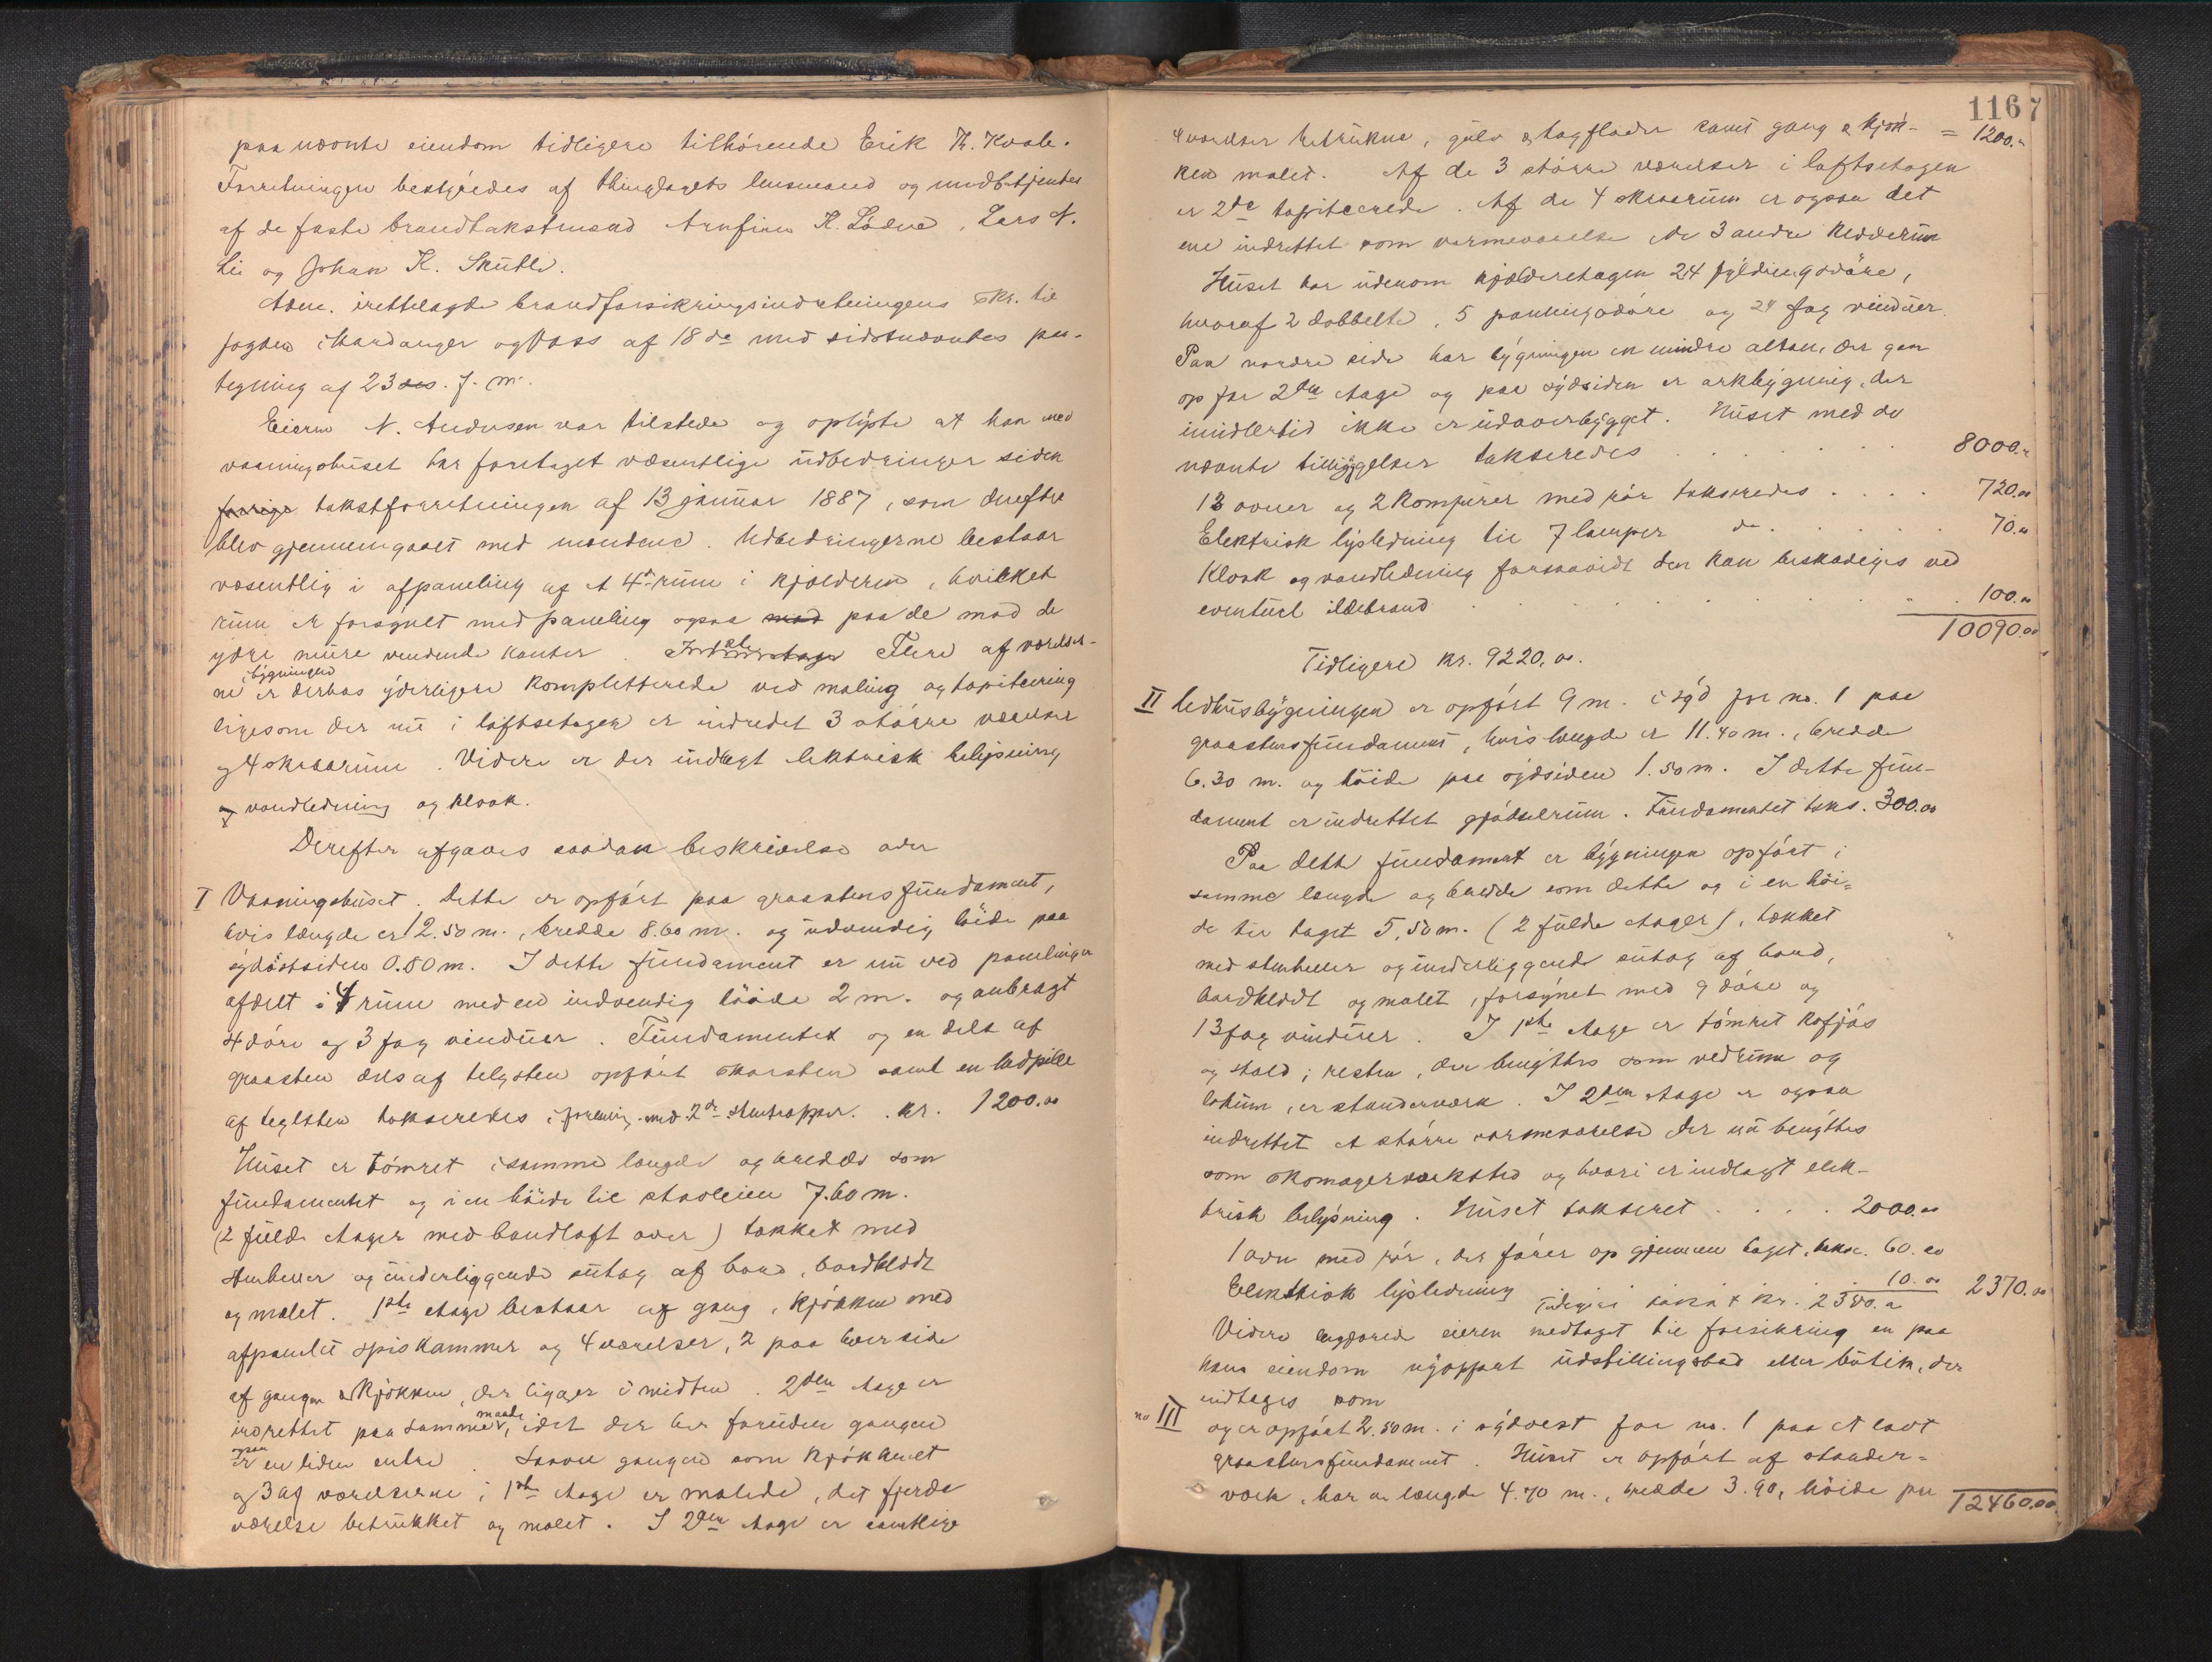 paa nævnte eiendom tidligere tilhörende Erik K. Kvale.
Forretningen bestyredes af thinglagets lensmand og medbetjentes
af de faste brandtakstmænd Arnfinn K. Lödve, Lars N.
Lie og Johan K. Skutle.
Adm. irettelagde brandforsikringsindretningens skr. til
fogden i Hardanger og Voss af 18de med sidstnævntes paa-
tegning af 23 f. m.
Eieren N. Andersen var tilstede og oplyste at han med
vaaningshuset har foretaget væsentlige udbedringer siden
forrige takstforretningen af 13 januar 1887, som derefter
blev gjennemgaaet med mændene. Udbedringerne bestaar
væsentlig i afpaneling af et 4de rum i kjelderen, hvilket
rum er forsynet med paneling ogsaa mod paa de mod de
ydre mure vendende kanter. Flere af værelser-
bygningen
ne i er derhos yderligere kompletterede ved maling og tapitsering
ligesom der nu i loftsetagen er indredet 3 större værelser
og 4 skraarum. Videre er der indlagt elektrisk belysning
og vandledning og kloak.
Derefter afgaves saadan beskrivelse over
I Vaaningshuset. Dette er opfört paa graastensfundament,
hvis længde er 12.50 m., bredde 8.60 m. og udvendig höide paa
sydöstsiden 0.80 m. I dette fundament er nu ved panelinger
afdelt i 4 rum med en indvendig höide 2 m. og anbragt
4 döre og 3 fag vinduer. Fundamentet og en dels af
graasten dels af teglsten opfört skorsten samt en bedpille
af teglsten takseredes i forening med 2de stentrapper. kr. 1200.00
Huset er tömret i samme længde og bredde som
fundamentet og i en höide til stavleien 7.60 m.
(2 fulde etager med bandloft over) tækket med
stenheller og underliggende sutag af bord, bordklædt
og malet. 1ste etage bestaar af gang, kjökken med
afpanelet spiskammer og 4 værelser, 2 paa hver side
af gangen & kjökken, der ligger i midten. 2den etage er
indrettet paa samme maade, idet der her foruden gangen
ogsaa
er en liden entre. Saavel gangen som kjökkenet
og 3 af værelserne i 1ste etage er malede, det fjerde
værelse betrukket og malet. I 2den etage er samtlige
116 7
4 værelser betrukne, gulv & tagflader samt gang & kjök- = 1200.
ken malet. Af de 3 större værelser i loftsetagen
er 2de tapitserede. Af de 4 skraarum er ogsaa det
ene indrettet som varmeværelse de 3 andre klæderum
Huset har udenom kjelderetagen 24 fyldingsdöre,
hvoraf 2 dobbelte, 5 panelingsdöre og 24 fag vinduer.
Paa nordre side har bygningen en mindre altan, der gaar
op for 2den etage og paa sydsiden er arkbygning, der
imidlertid ikke er udoverbygget. Huset med de
nævnte tilbyggelser takseredes . . . . . . 8000.
12 ovner og 2 komfurer med rör takseredes . . . . 720.00
Elektrisk lysledning til 7 lamper do. . . . . . 70.00
Kloak og vandledning forsaavidt den kan beskadiges ved
eventuel ildebrand . . . . . . . . . . 100.00
10090.00
Tidligere kr. 9220.00.
II Uedhusbygningen er opfört 9 m. i syd for no. 1 paa
graastensfundament, hvis længde er 11.40 m., bredde
6.30 m. og höide paa sydsiden 1.50 m. I dette fun-
dament er indrettet gjödselrum. Fundamentet taks. 300.00
Paa dette fundament er bygningen opfört i
samme længde og bredde som dette og i en höi-
de til taget 5,50 m. (2 fulde etager), tækket
med stenheller og underliggende sutag af bord,
bordklædt og malet, forsynet med 9 döre og
13 fag vinduer. I 1ste etage er tömret kofjös
og stald; resten, der benyttes som vedrum og
lokum, er standerværk. I 2den etage er ogsaa
indrettet et större varmeværelse der nu benyttes
som skomagerværksted og hvori er indlagt elek-
trisk belysning. Huset takseret . . . . 2000.00
1 ovn med rör, der förer op gjennem taget, takse. 60.00
Elektrisk lysledning 10.00 2370.00
Tidligere takst kr. 2380.00
Videre begjærede eieren medtaget til forsikring en paa
hans eiendom nyopfört udstillingsbod eller butik, der
indtages som
no III og er opfört 2.50 m. i sydvest for no. 1 paa et lavt
graastensfundament. Huset er opfört af stander-
værk, har en længde 4.70 m., bredde 3.90, höide paa 12460.00